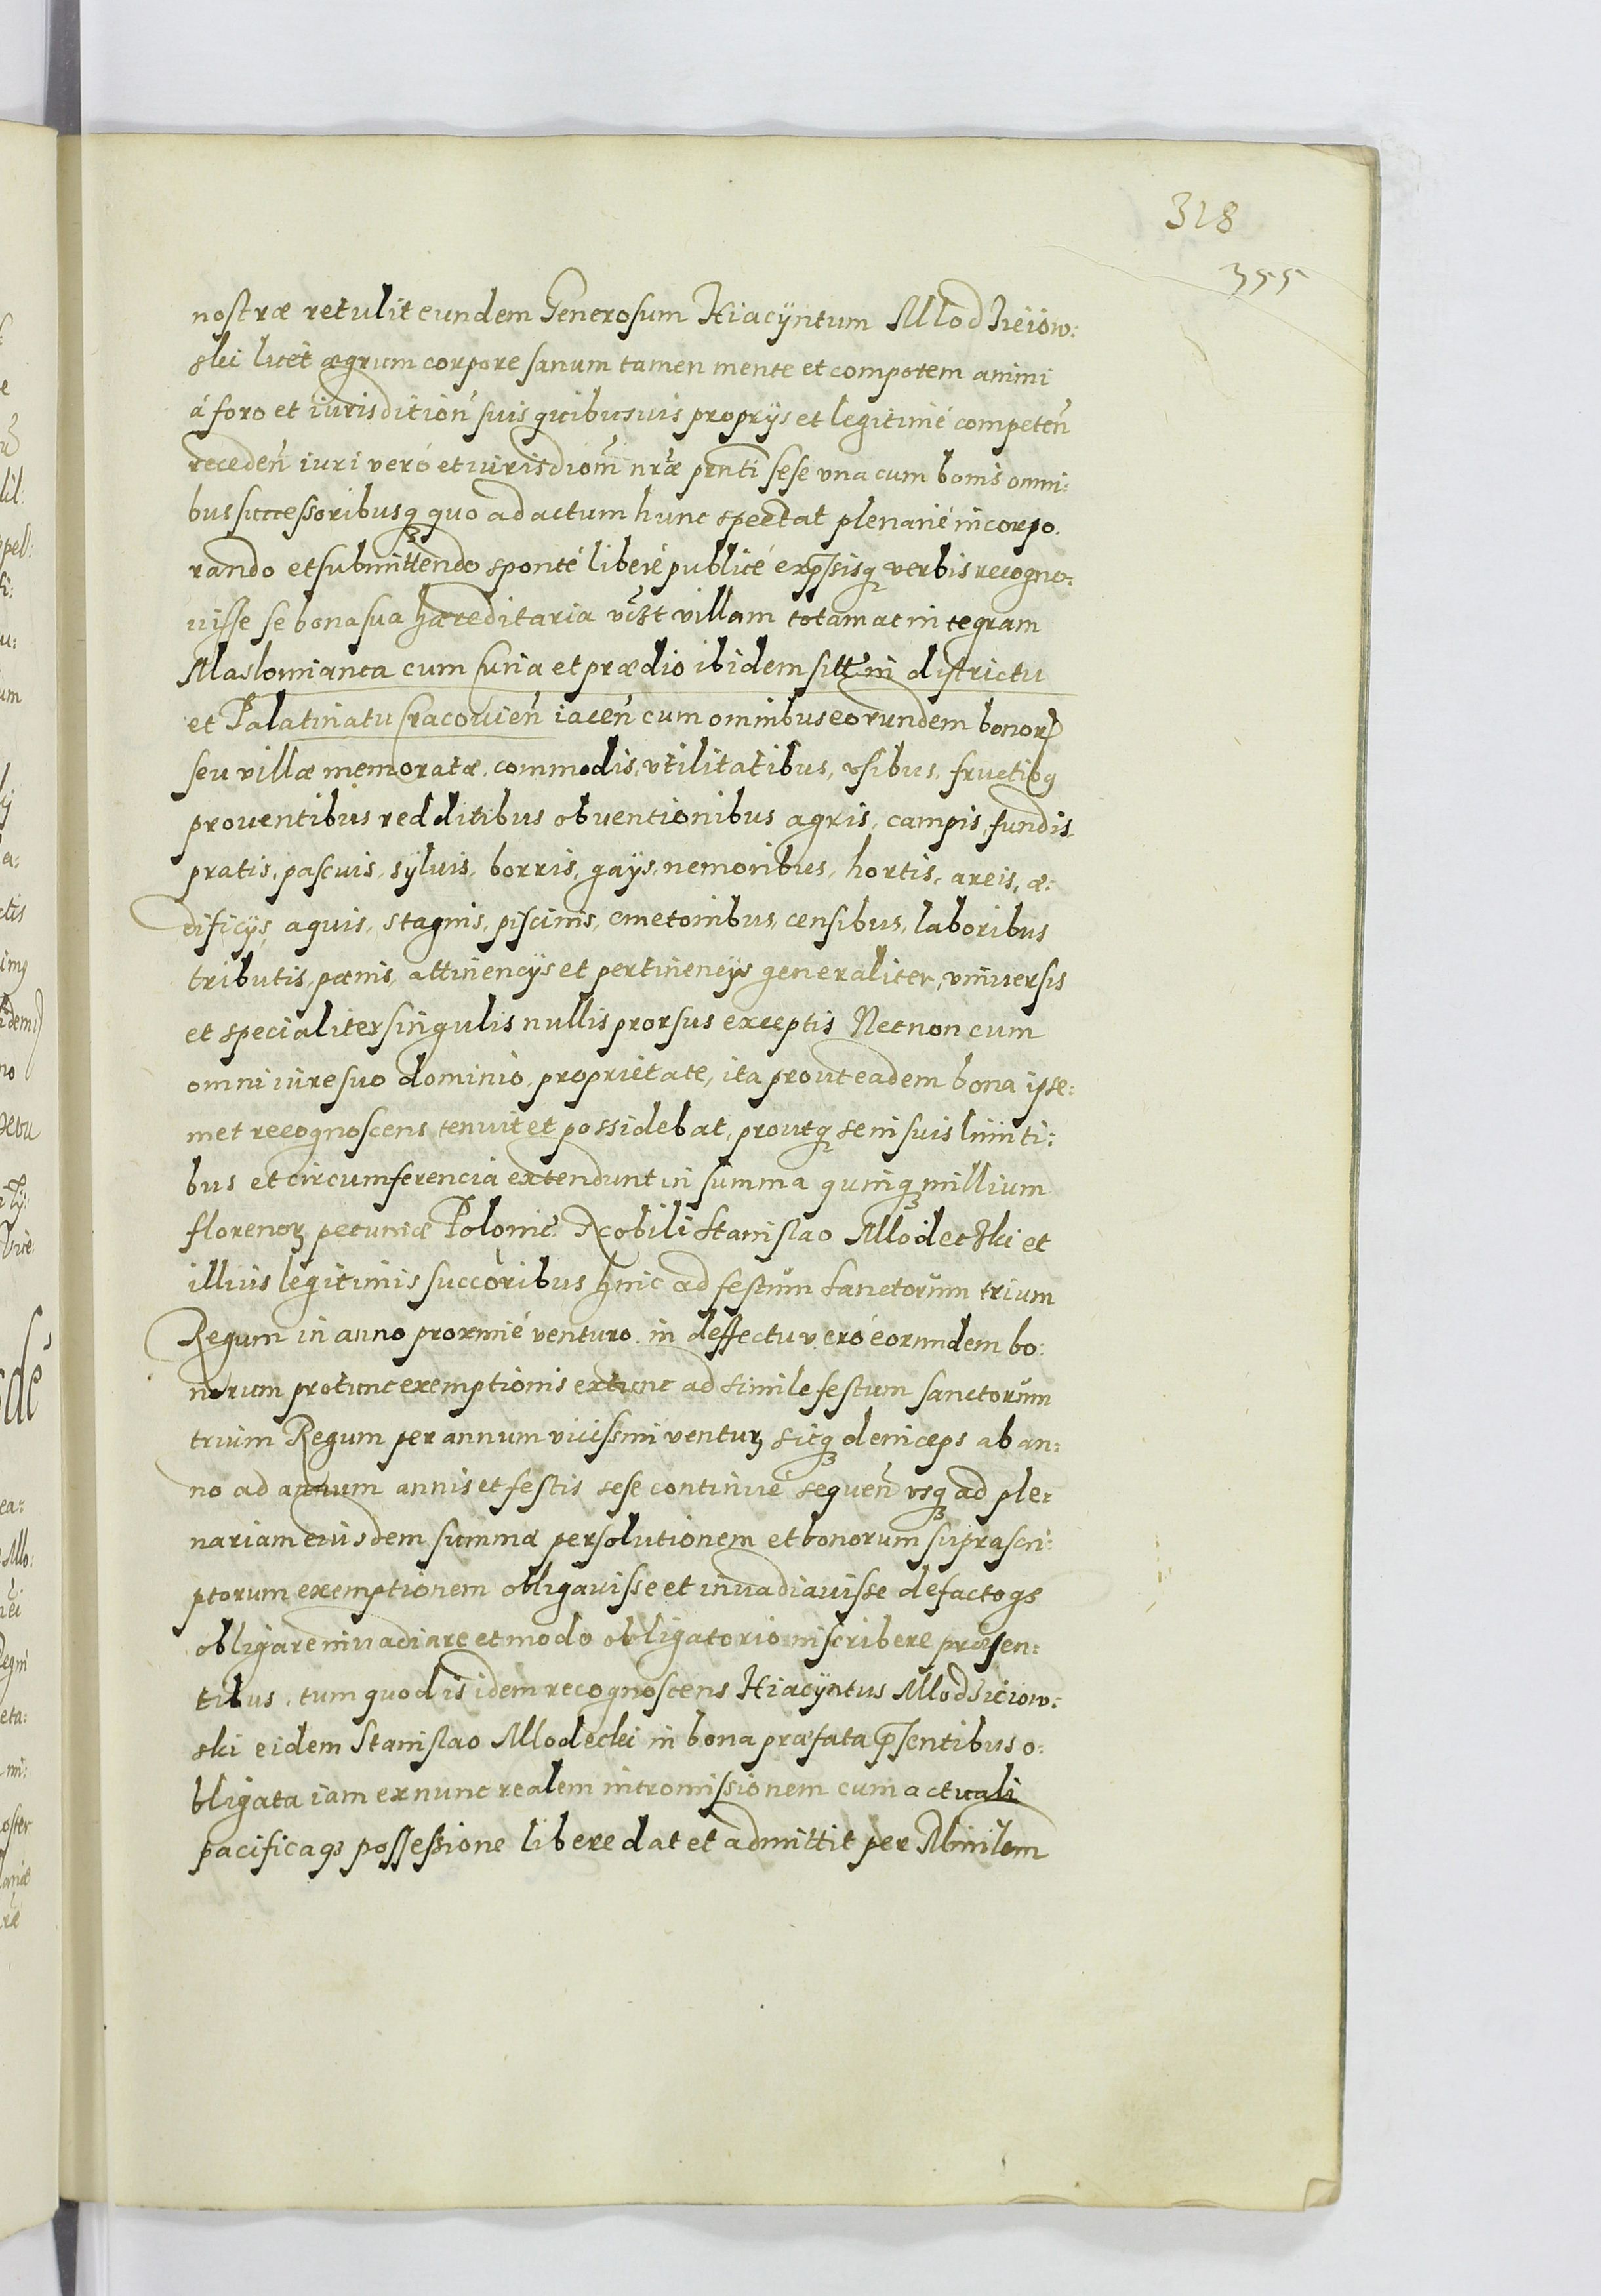 328
355
nostræ retulit eundem Generosum Hiacÿntum Mlodzieiow:
ski licet ægrum corpore sanum tamen mente et compotem animi
á foro et iurisdition̄ suis quibusuis proprÿs et legitimé competen̄
receden̄ iuri veró et iurisdiom̄ nræ pnti sese vna cum bonis omni:
bus successoribusq quo ad actum hunc spectat plenarié incorpo.
rando et submittendo sponté liberé publicé expssisq verbis recogno:
uisse se bona sua hæreditaria vczt villam totam ac integram
Maslomianca cum Curia et prædio ibidem sitt in districtu
et Palatinatu Cracouien̄ iacen̄ cum omnibus eorundem bonor
seu villæ memoratæ. commodis, vtilitatibus, vsibus, fructibq
prouentibus redditibus obuentionibus agris, campis, fundis.
pratis, pascuis, sÿluis, borris, gaÿs, nemoribus, hortis, areis, æ:
dificÿs, aquis, stagnis, piscinis, cmetonibus, censibus, laboribus
tributis, pænis, attinencÿs et pertinencÿs generaliter, vniuersis
et specialiter singulis nullis prorsus exceptis Necnon cum
omni iure suo dominio, proprietate, ita prout eadem bona ipse:
met recognoscens tenuit et possidebat, proutq se in suis limiti:
bus et circumferencia extendunt in summa quinq millium
florenorz pecuniæ Polonic̄. Nobili Stanislao Mlodeczki et
illius legitimis succoribus hinc ad festum Sanctorum trium
Regum in anno proximé venturo. in deffectu veró eorundem bo:
norum protunc exemptionis extunc ad simile festum sanctorum
trium Regum per annum vicissim venturz sicq deinceps ab an:
no ad annum annis et festis sese continué sequen̄ vsq ad ple:
nariam eiusdem summæ persolutionem et bonorum suprascri:
ptorum exemptionem obligauisse et inuadiauisse de factoqs
obligare inuadiare et modo obligatorio inscribere præsen:
tibus. tum quod is idem recognoscens Hiacÿntus Mlodzieiow:
ski eidem Stanislao Mlodecki in bona præfata psentibus o:
bligata iam ex nunc realem intromissionem cum actuali
pacificaqs possessione libere dat et admittit per Minilem